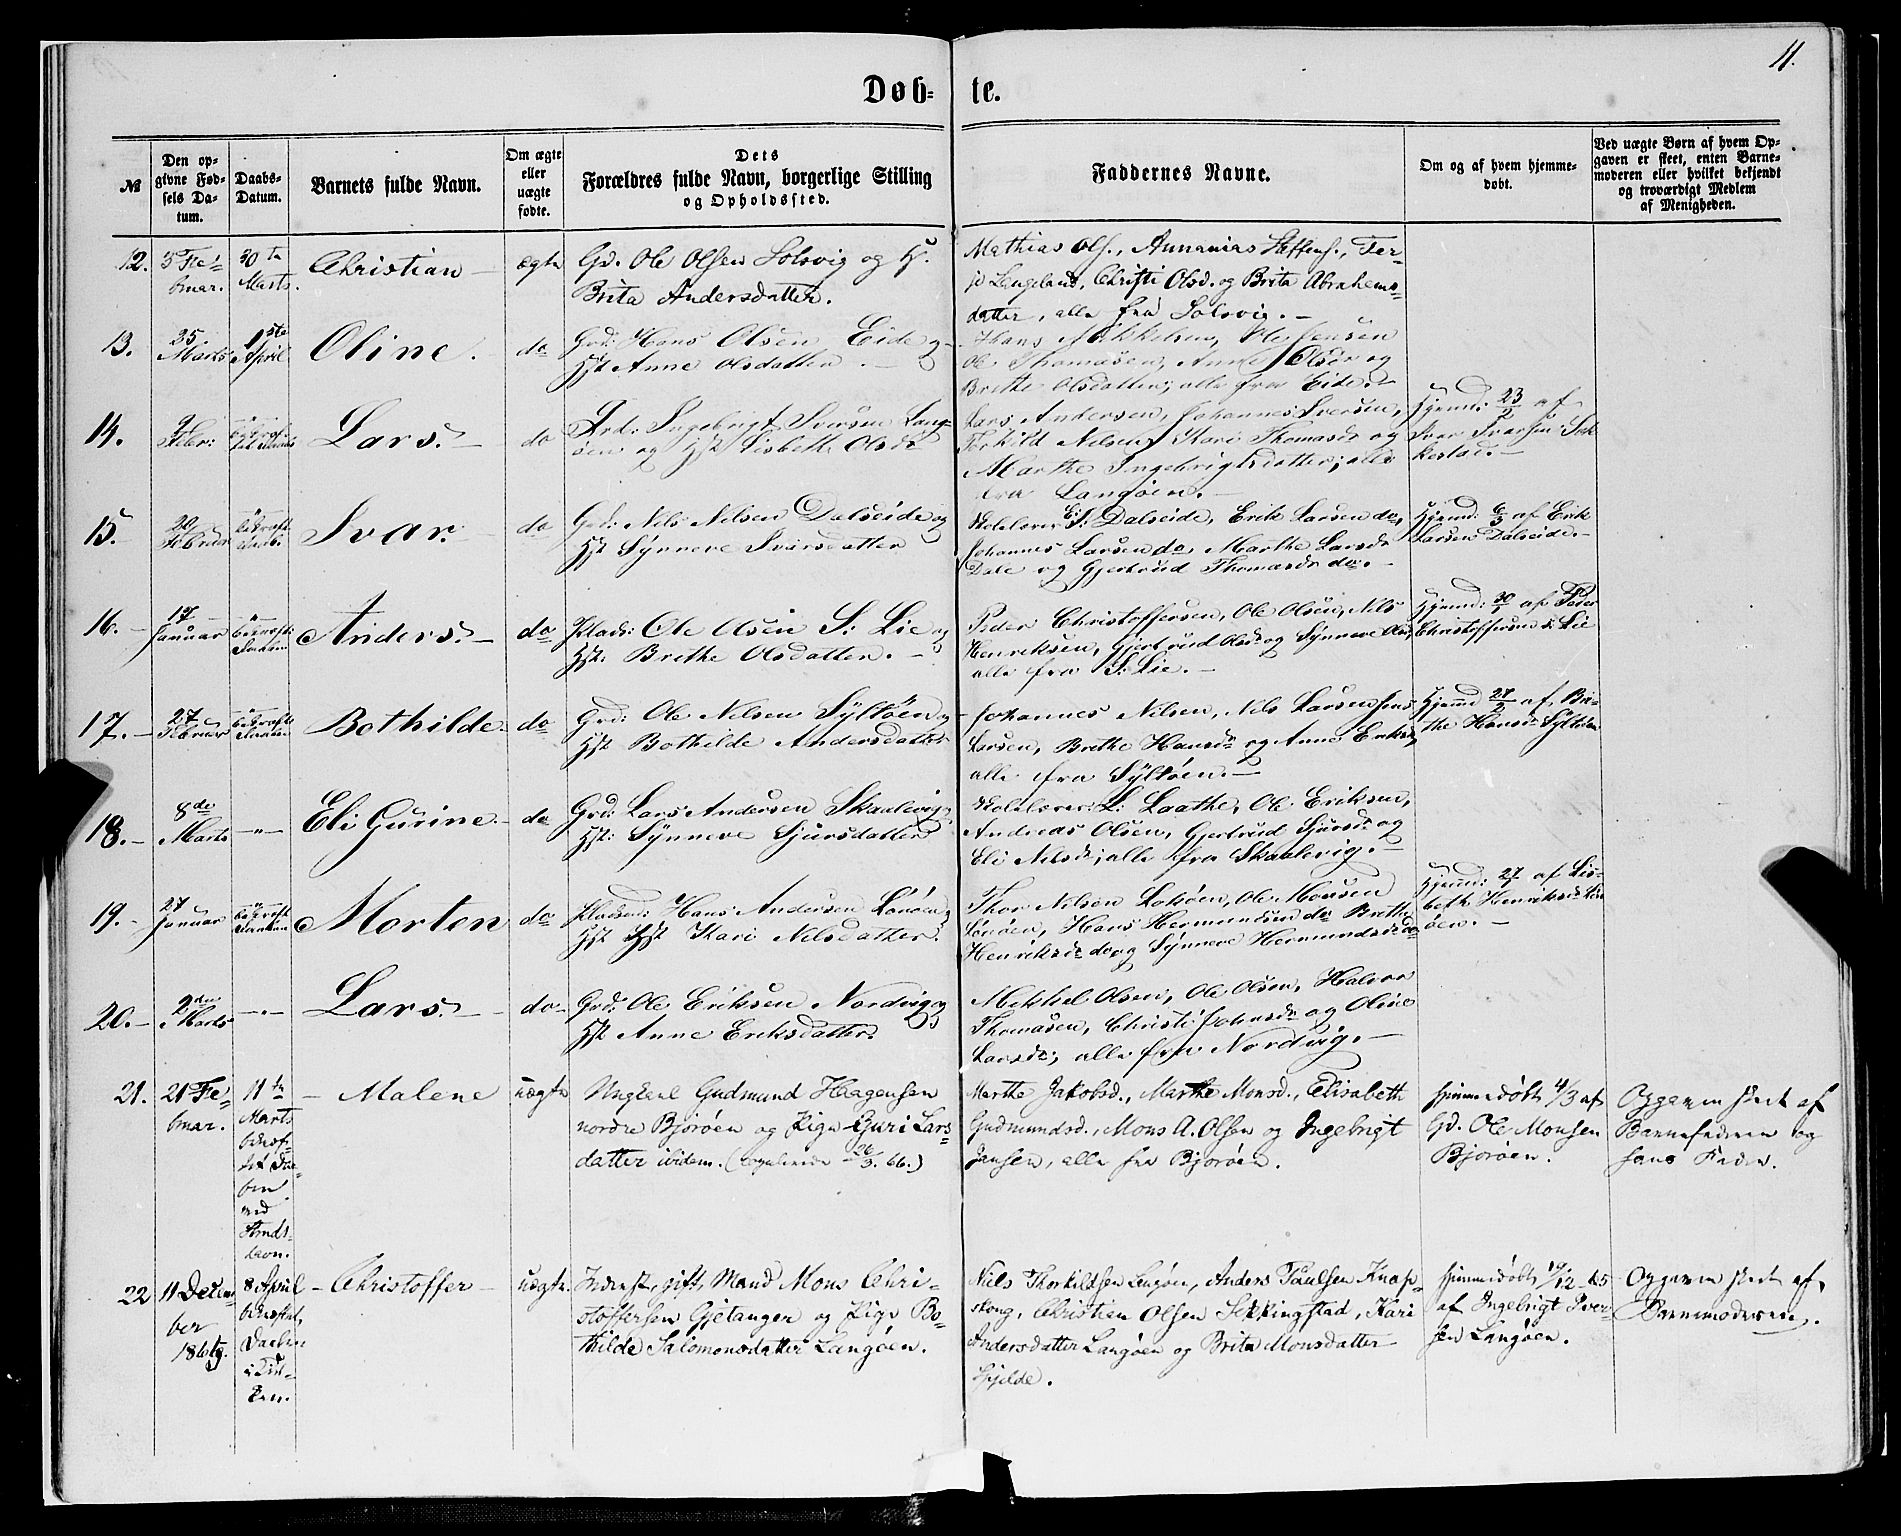 11.
Døb-
te.
№
Den op-
givne Fød-
sels Da-
tum.
Daabs-
Datum.
Barnets fulde Navn.
Om ægte
eller
uægte
fødte.
Dets
Forældres fulde Navn, borgerlige Stilling
og Opholdssted.
Faddernes Navne.
Om og af hvem hjemme-
døbt.
Ved uægte Børn af hvem Op-
gaven er skeet, enten Barne-
moderen eller hvilket bekjendt
og troværdigt Medlem
af Menigheden.
12. 5 Fe-
bruar.
30te
Marts.
Christian
ægte
Gd. Ole Olsen Solsvig og H.
Brita Andersdatter.
Mathias Ols., Annanias Steffens.,
Lengeland, Christi Olsd. og Brita Abrahams-
datter, alle fra Solsvig.
13. 25
Marts
1ste
April
Oline.
do
Grd: Hans Olsen Eide og
Hst Anne Olsdatter.
Hans Mikkelsen, Ole Jensen
Ole Thomasen, Anne Olsdr og
Brithe Olsdatter, alle fra Eide.
14.
Febr:
Lars.
do
Grd: Ingebrigt Iversen Lang-
øen og Hst Lisbeth Olsdr
Lars Andersen, Johannes Iversen,
Torkild Nilsen, Kari Thomasdr og
Marthe Ingebrigtsdatter, alle
fra Langøen.
Hjemd: 23/2 af
Ivar Ivarsen Sek-
kestad.
15. 20
Februar
Ivar.
do
Grd: Nils Nilsen Dalseide og
Hst Synneve Ivarsdatter
Skolelærer E: Dalseide, Erik Larsen do,
Johannes Larsen do, Marthe Larsdr
Dale og Gjertrud Thomasdr do.
Hjemd: 6/3 af Erik
Larsen Dalseide.
16. 17
Januar
Anders.
do
Plads: Ole Olsen S: Lie og
Hst: Brithe Olsdatter.
Peder Christoffersen, Ole Olsen, Nils
Henriksen, Gjertrud Olsdr og Synneve Olsdr
alle fra S: Lie.
Hjemd: 30/1 af Peder
Christoffersen S: Lie
17. 27
Februar
Bothilde.
do
Grd: Ole Nilsen Syltøen og
Hst Bothilde Andersdatter
Johannes Nilsen, Nils Larsen, Jens
Larsen, Brethe Hansdr og Anne Eriksdr,
alle fra Syltøen.
Hjemd 27/2 af Bri-
the Hansdr Syltøen
18. 8de
Marts
Eli Gurine.
do
Grd: Lars Andersen Skaalevig og
Hst: Synneve Sjursdatter.
Skolelærer L: Laathe, Ole Eriksen,
Andreas Olsen, Gjertrud Sjursdr og
Eli Nilsdr; alle fra Skaalevig.
19. 27
Januar
Morten
do
Pladsm: Hans Andersen Lønøen og
Hst Kari Nilsdatter.
Thor Nilsen Lokøen, Ole Monsen
Lønøen, Hans Hermundsen do Brithe
Henriksdr do og Synneve Hermundsdr do
Hjemd: 27/1 af Lis-
beth Henriksdr Løn-
øen.
20. 2den
Marts
Lars.
do
Grd: Ole Eriksen Nordvig og
Hst Anne Eriksdatter.
Mikkel Olsen, Ole Olsen, Halvor
Thomasen, Christi Johnsdr og Oline
Larsdr; alle fra Nordvig.
21. 21 Fe-
bruar.
11te
Marts
bekræf-
tet Daa-
ben
ved
Strids-
havn.
Malene
uægte
Ungkarl Gudmund Haagensen
nordre Bjorøen og Pige Guri Lars-
datter ibidem. (copulerede 26/3. 66.)
Marthe Jakobsd., Marthe Monsd., Elisabeth
Gudmundsd., Mons A. Olsen og Ingebrigt
Jansen, alle fra Bjorøen.
Hjemmedøbt 4/3 af
Gd. Ole Monsen
Bjorøen.
Opgaven skeet af
Barnefaderen og
hans Fader.
22 11 Decem-
ber
1864.
8 April
bekræftet
Daaben
i Kir-
ken.
Christoffer
uægte.
Inderst, gift Mand Mons Chri-
stoffersen Gjetanger og Pige Bo-
thilde Salomonsdatter Langøen.
Niels Thorkildsen Langøen, Anders Paulsen Knap-
skog, Christian Olsen Sekkingstad, Kari
Andersdatter Langøen og Brita Monsdatter
Spjelde.
Hjemmedøbt 19/12 65
af Ingebrigt Iver-
sen Langøen.
Opgaven skeet af
Barnemoderen.